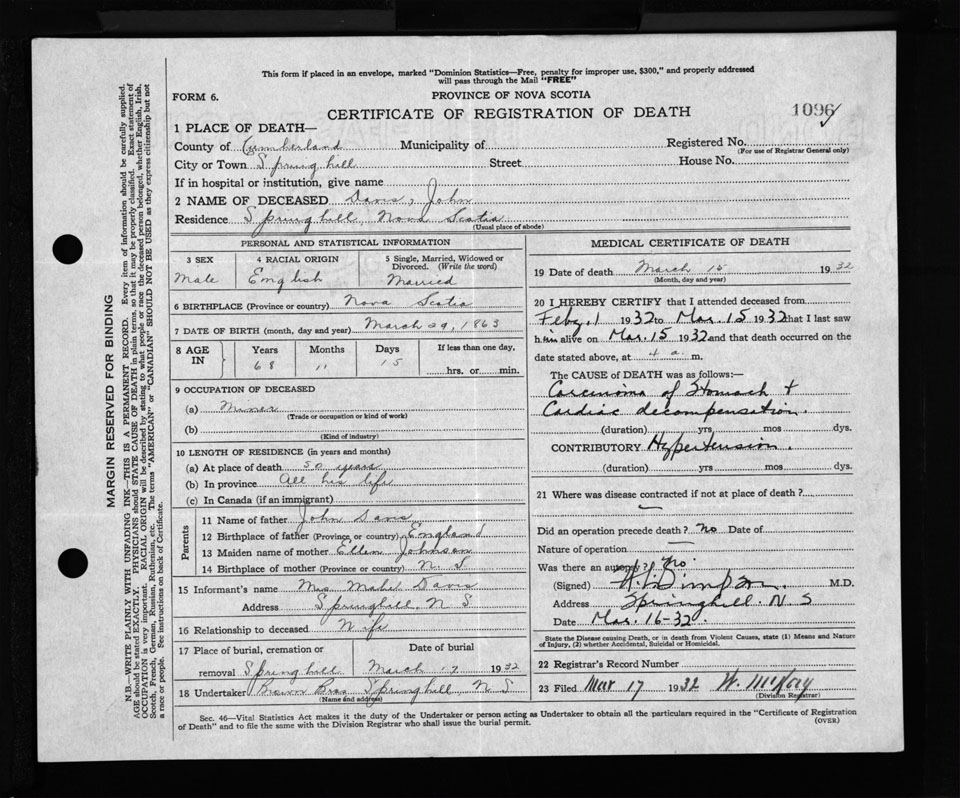 This form if placed in an envelope, marked "Dominion Statistics—Free, penalty for improper use, $300," and properly addressed
will pass through the Mail "FREE"
FORM 6.
PROVINCE OF NOVA SCOTIA
CERTIFICATE OF REGISTRATION OF DEATH
1096 ✓
1 PLACE OF DEATH—
County of Cumberland Municipality of Registered No.
(For use of Registrar General only)
City or Town Springhill Street House No.
If in hospital or institution, give name
2 NAME OF DECEASED Davis, John
Residence Springhill, Nova Scotia
(Usual place of abode)
PERSONAL AND STATISTICAL INFORMATION
3 SEX 4 RACIAL ORIGIN 5 Single, Married, Widowed or Divorced. (Write the word)
Male English Married
6 BIRTHPLACE (Province or country) Nova Scotia
7 DATE OF BIRTH (month, day and year) March 29, 1863
8 AGE IN Years Months Days If less than one day,
68 11 15 hrs. or min.
9 OCCUPATION OF DECEASED
(a) Miner
(Trade or occupation or kind of work)
(b)
(Kind of industry)
10 LENGTH OF RESIDENCE (in years and months)
(a) At place of death 50 years
(b) In province All his life
(c) In Canada (if an immigrant)
Parents
11 Name of father John Davis
12 Birthplace of father (Province or country) England
13 Maiden name of mother Ellen Johnson
14 Birthplace of mother (Province or country) N. S
15 Informant's name Mrs. Davis
Address Springhill N S
16 Relationship to deceased Wife
17 Place of burial, cremation or removal Date of burial
Springhill March 17 1932
18 Undertaker Brown Bros Springhill, N S
(Name and address)
MEDICAL CERTIFICATE OF DEATH
19 Date of death March 15 1932
(Month, day and year)
20 I HEREBY CERTIFY that I attended deceased from
Feby. 1 1932 to Mar. 15 1932 that I last saw
him alive on Mar. 15 1932 and that death occurred on the
date stated above, at 4 a. m.
The CAUSE of DEATH was as follows:
Carcinoma of Stomach +
Cardiac decompensation.
(duration) yrs mos dys.
CONTRIBUTORY Hypertension.
(duration) yrs mos dys.
21 Where was disease contracted if not at place of death?
—
Did an operation precede death? No Date of
Nature of operation —
Was there an autopsy? No.
(Signed) M.D.
Address Springhill. N S
Date Mar. 16-32.
State the Disease causing Death, or in death from Violent Causes, state (1) Means and Nature
of Injury, (2) whether Accidental, Suicidal or Homicidal.
22 Registrar's Record Number
23 Filed Mar 17 1932 W. McKay
(Division Registrar)
Sec. 46—Vital Statistics Act makes it the duty of the Undertaker or person acting as Undertaker to obtain all the particulars required in the "Certificate of Registration
of Death" and to file the same with the Division Registrar who shall issue the burial permit.
(OVER)
MARGIN RESERVED FOR BINDING
N.B.—WRITE PLAINLY WITH UNFADING INK—THIS IS A PERMANENT RECORD. Every item of information should be carefully supplied.
AGE should be stated EXACTLY. PHYSICIANS should STATE CAUSE OF DEATH in plain terms, so that it may be properly classified. Exact statement of
OCCUPATION is very important. RACIAL ORIGIN will be described by stating to what people or race the deceased person belonged, whether English, Irish,
Scotch, French, German, Russian, Ruthenian, etc. The terms "AMERICAN" or "CANADIAN" SHOULD NOT BE USED as they express citizenship but not
a race or people. See instructions on back of Certificate.